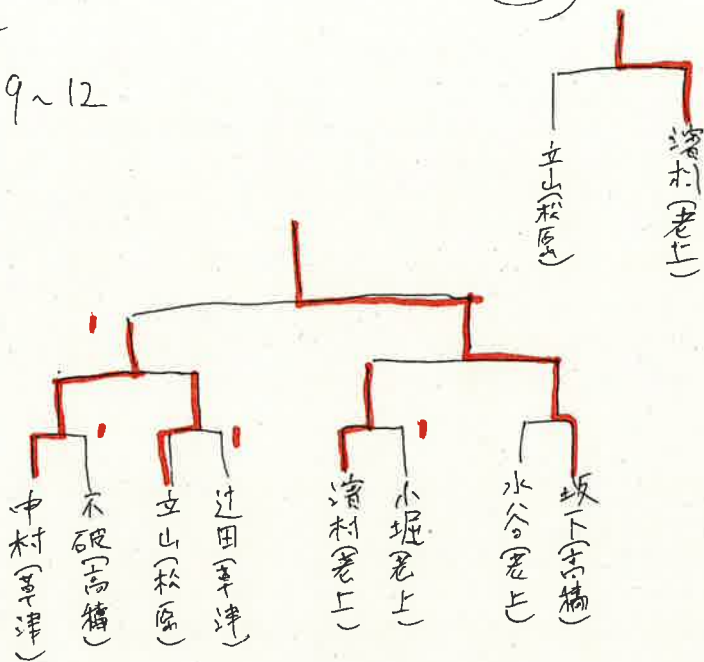 9~12
立山(松原)
濱村(老上)
中村(草津)
不破(高穂)
立山(松原)
辻田(草津)
濱村(老上)
小堀(老上)
水谷(老上)
坂下(高穂)